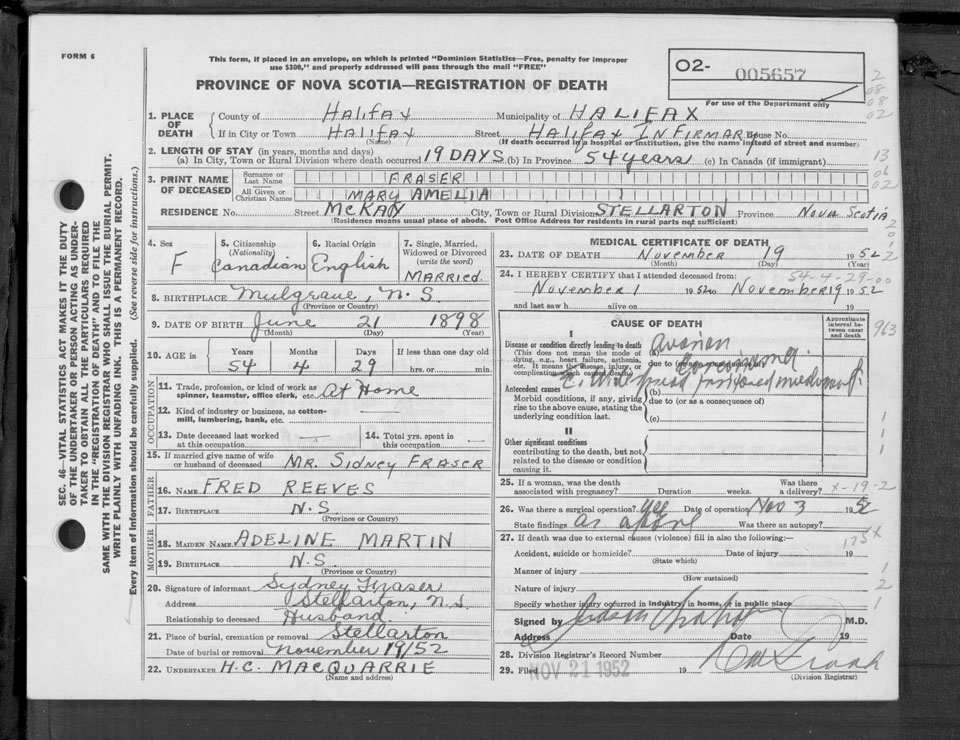 FORM 6
This form, if placed in an envelope, on which is printed "Dominion Statistics—Free, penalty for improper
use $300," and properly addressed will pass through the mail "FREE"
PROVINCE OF NOVA SCOTIA—REGISTRATION OF DEATH
O2- 005657
For use of the Department only
1. PLACE OF DEATH
County of Halifax Municipality of HALIFAX
If in City or Town Halifax Street HALIFAX INFIRMARY House No.
(Name) (If death occurred in a hospital or institution, give the name instead of street and number)
2. LENGTH OF STAY (in years, months and days)
(a) In City, Town or Rural Division where death occurred 19 DAYS (b) In Province 54 years (c) In Canada (if immigrant)
3. PRINT NAME OF DECEASED
Surname or Last Name FRASER
All Given or Christian Names MARY AMELIA
RESIDENCE No. Street McKAY City, Town or Rural Division STELLARTON Province Nova Scotia
(Residence means usual place of abode. Post Office Address for residents in rural parts not sufficient)
4. Sex F
5. Citizenship (Nationality) Canadian
6. Racial Origin English
7. Single, Married, Widowed or Divorced (write the word) MARRIED.
8. BIRTHPLACE Mulgrave, N.S.
(Province or Country)
9. DATE OF BIRTH June 21 1898
(Month) (Day) (Year)
10. AGE in Years Months Days If less than one day old
54 4 29 hrs. or min.
OCCUPATION
11. Trade, profession, or kind of work as spinner, teamster, office clerk, etc. At Home
12. Kind of industry or business, as cotton-mill, lumbering, bank, etc. —
13. Date deceased last worked at this occupation —
14. Total yrs. spent in this occupation —
15. If married give name of wife or husband of deceased MR. SIDNEY FRASER
FATHER
16. NAME FRED REEVES
17. BIRTHPLACE N.S.
(Province or Country)
MOTHER
18. MAIDEN NAME ADELINE MARTIN
19. BIRTHPLACE N.S.
(Province or Country)
20. Signature of informant Sydney Fraser
Address Stellarton, N.S.
Relationship to deceased Husband.
21. Place of burial, cremation or removal Stellarton
Date of burial or removal November 19/52
22. UNDERTAKER H.C. MACQUARRIE
(Name and address)
MEDICAL CERTIFICATE OF DEATH
23. DATE OF DEATH November 19 1952
(Month) (Day) (Year)
54-4-29-00
24. I HEREBY CERTIFY that I attended deceased from:
November 1 1952 to November 19 1952
and last saw h alive on 19
CAUSE OF DEATH
Approximate interval between onset and death
I
Disease or condition directly leading to death
(This does not mean the mode of dying, e.g., heart failure, asthenia, etc. It means the disease, injury, or complication which caused death)
(a)
due to
Antecedent causes
Morbid conditions, if any, giving rise to the above cause, stating the underlying condition last.
(b)
due to (or as a consequence of)
(c)
II
Other significant conditions
contributing to the death, but not related to the disease or condition causing it.
25. If a woman, was the death associated with pregnancy? Duration weeks. Was there a delivery?
x-19-2
26. Was there a surgical operation? yes Date of operation Nov 3 1952
State findings as above Was there an autopsy?
27. If death was due to external causes (violence) fill in also the following:—
Accident, suicide or homicide? Date of injury 19
(State which)
Manner of injury
(How sustained)
Nature of injury
Specify whether injury occurred in industry, in home, or in public place
Signed by M.D.
Address Date 19
28. Division Registrar's Record Number
29. Filed NOV 21 1952 19
(Division Registrar)
963
SEC. 46—VITAL STATISTICS ACT MAKES IT THE DUTY
OF THE UNDERTAKER OR PERSON ACTING AS UNDER-
TAKER TO OBTAIN ALL THE PARTICULARS REQUIRED
IN THE "REGISTRATION OF DEATH" AND TO FILE THE
SAME WITH THE DIVISION REGISTRAR WHO SHALL ISSUE THE BURIAL PERMIT.
WRITE PLAINLY WITH UNFADING INK. THIS IS A PERMANENT RECORD.
Every item of information should be carefully supplied. (See reverse side for instructions.)